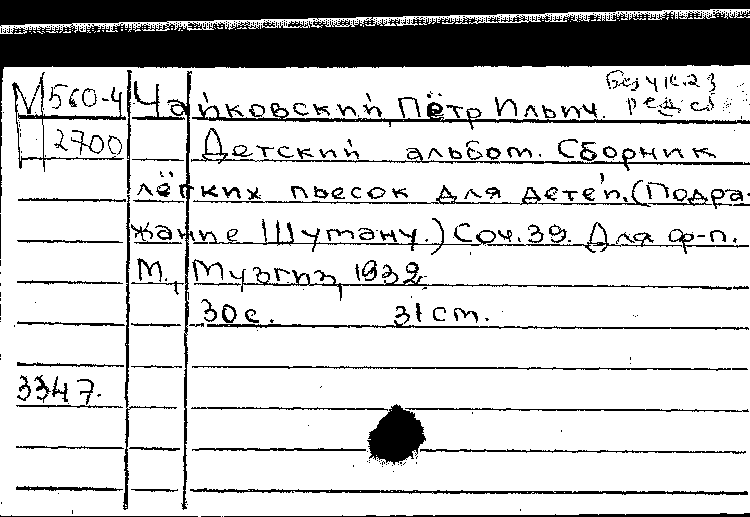 М 560-4 Чайковский, Пётр Ильич. Без указ.
2700 Детский альбом. Сборник
лёгких пьесок для детей. (Подра-
жание Шуману.) Соч. 39. Для ф-п.
М., Музгиз, 1932
30 с. 31 см.
3347.